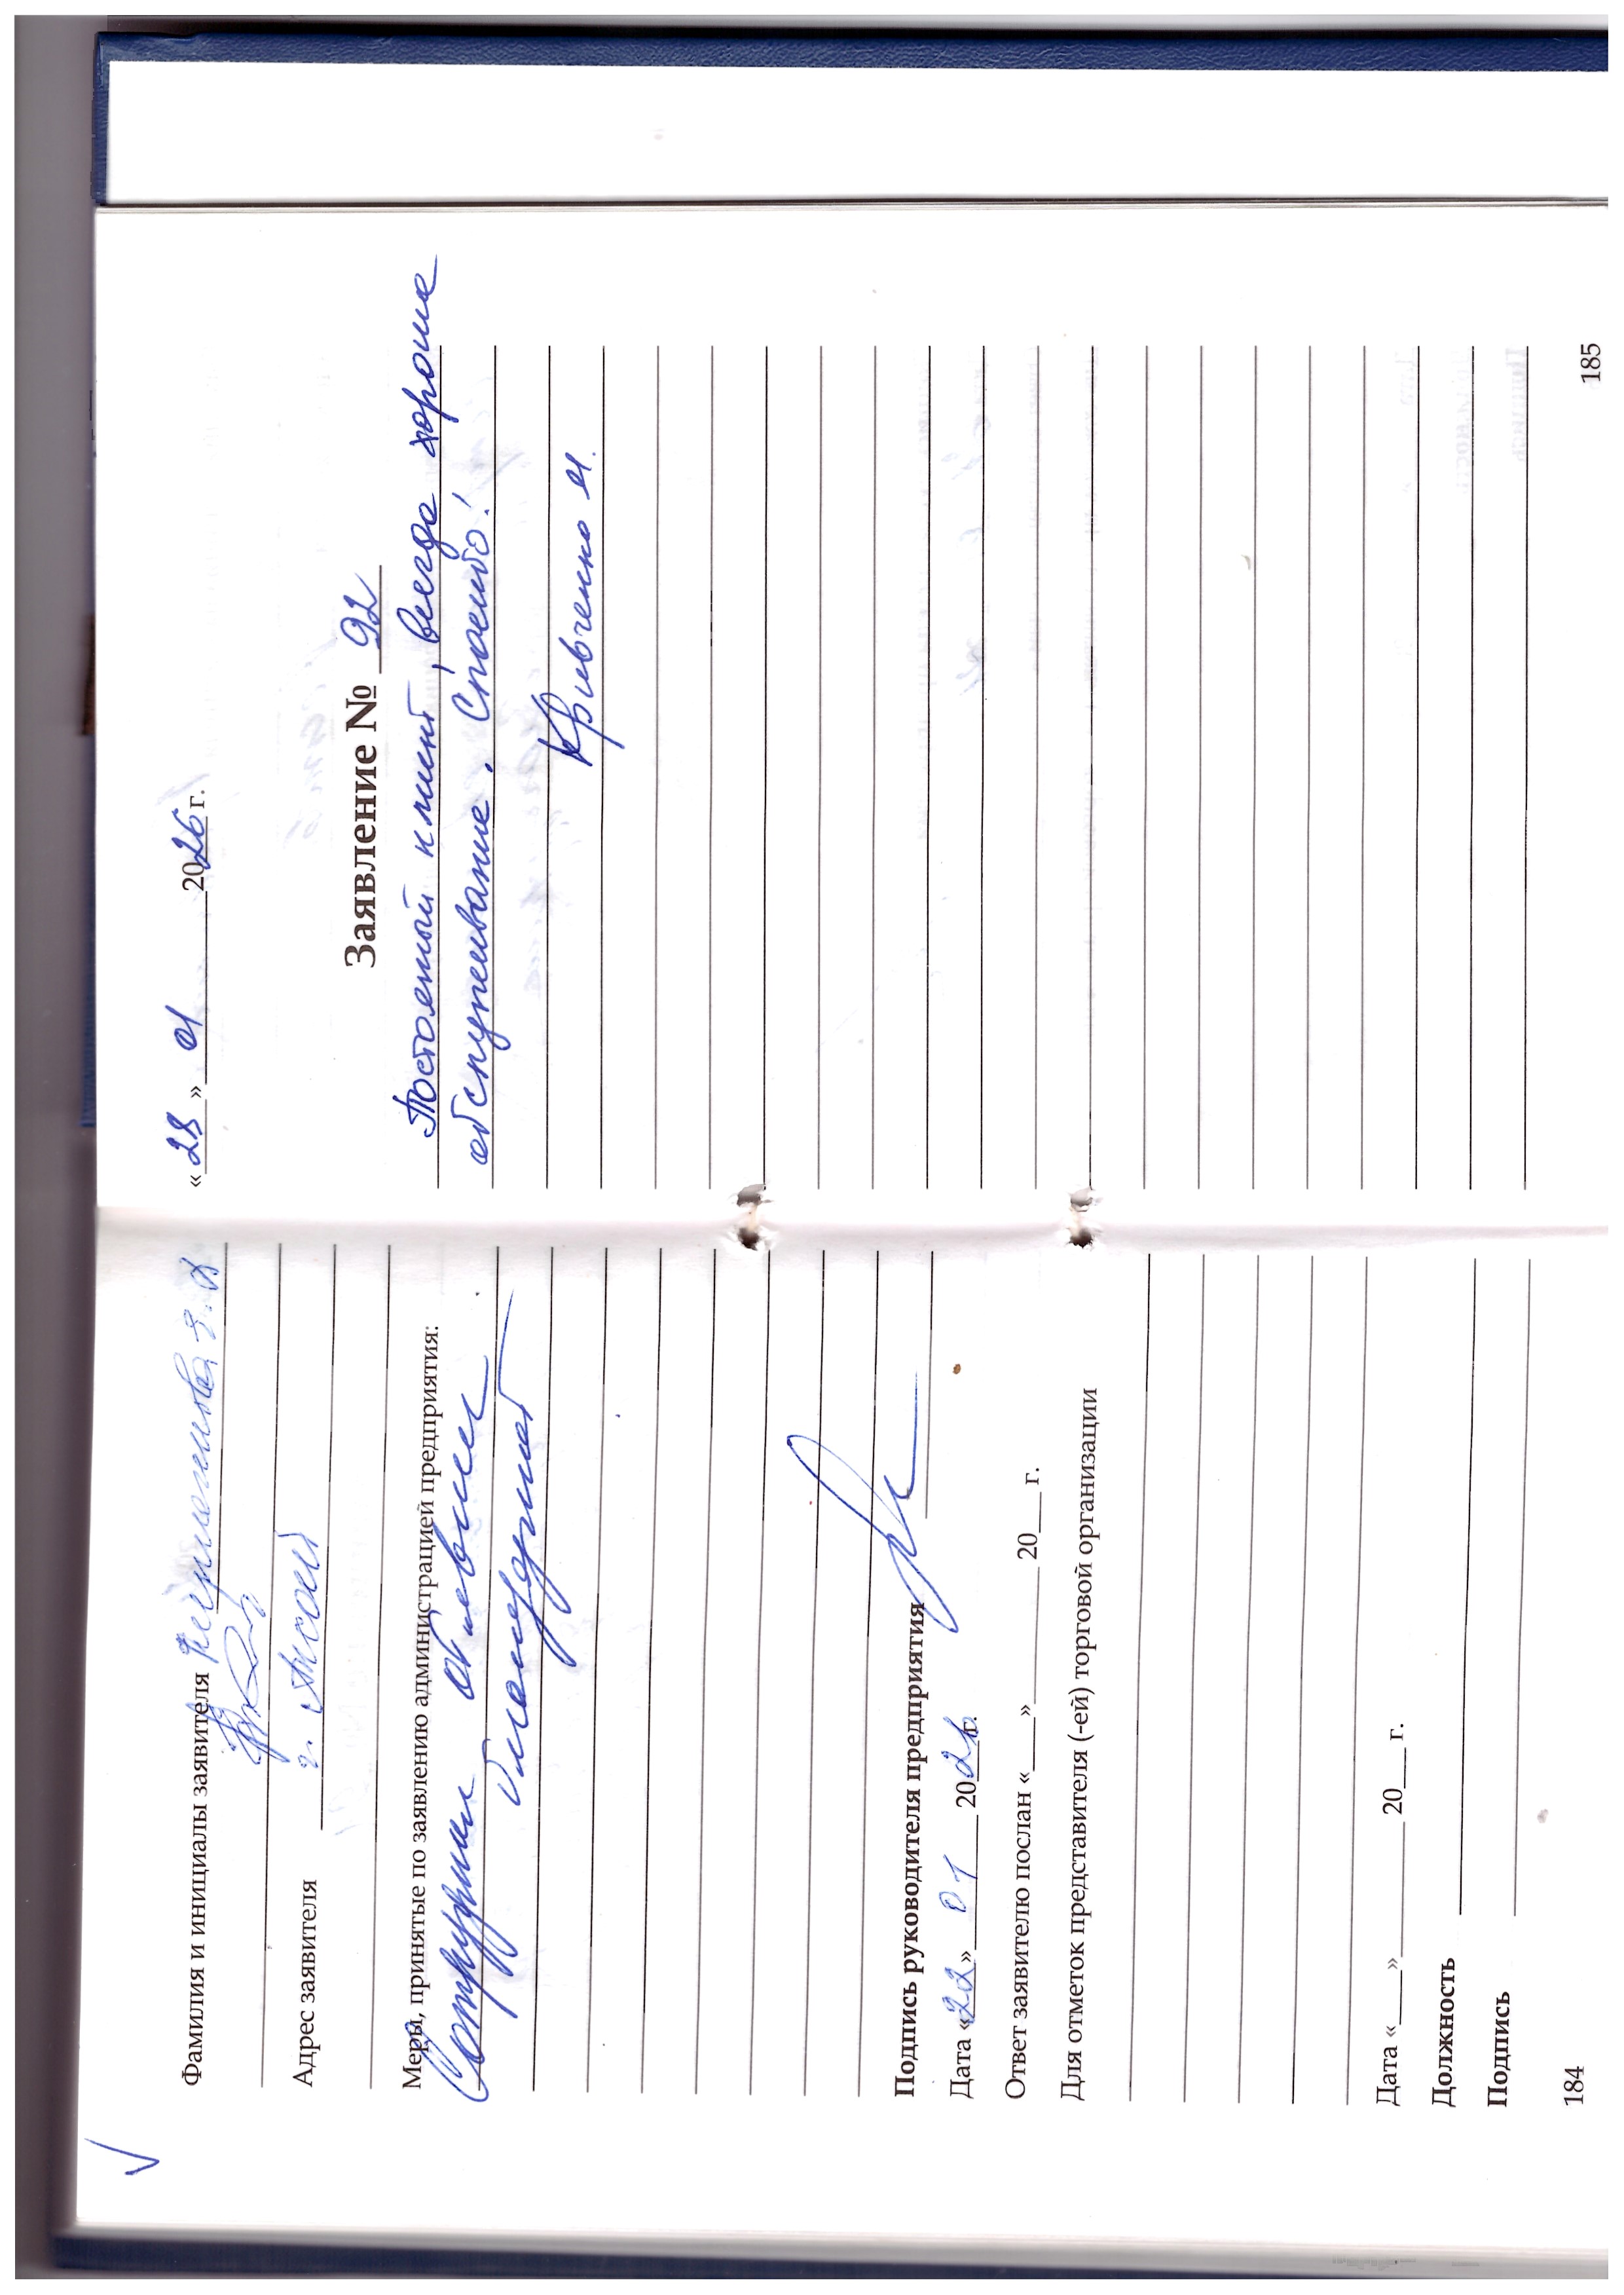 Фамилия и инициалы заявителя
Адрес заявителя г. Аксай
Меры, принятые по заявлению администрацией предприятия:
Сотруднику объявлена
благодарность
Подпись руководителя предприятия
Дата «22» 01 2026г.
Ответ заявителю послан «___»________ 20___ г.
Для отметок представителя (-ей) торговой организации
Дата «___»________ 20___ г.
Должность
Подпись
184
«28» 01 2026 г.
Заявление № 92
Постоянный клиент, всегда хорошее
обслуживание. Спасибо!
Кривченко И.
185